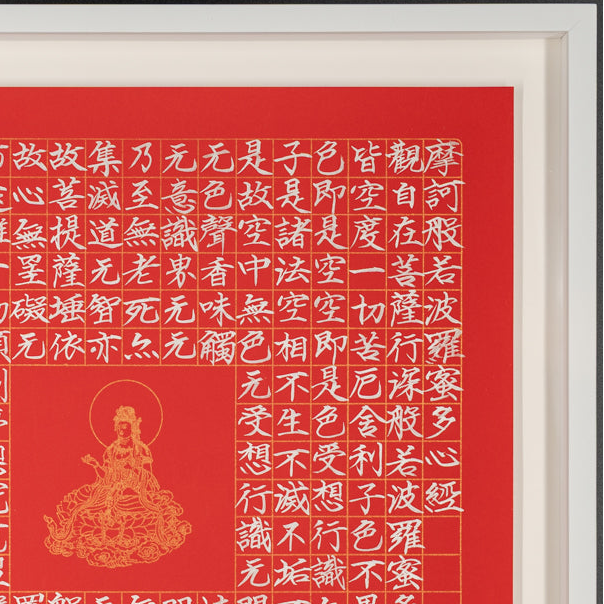 摩訶般若波羅蜜多心經
觀自在菩薩行深般若波羅蜜
皆空度一切苦厄舍利子色不
色即是空空即是色受想行識
子是諸法空相不生不滅不垢
是故空中無色无受想行識无
无色聲香味觸
无意識界无无
乃至無老死亦
集滅道无智亦
故菩提薩埵依
故心無罣礙无